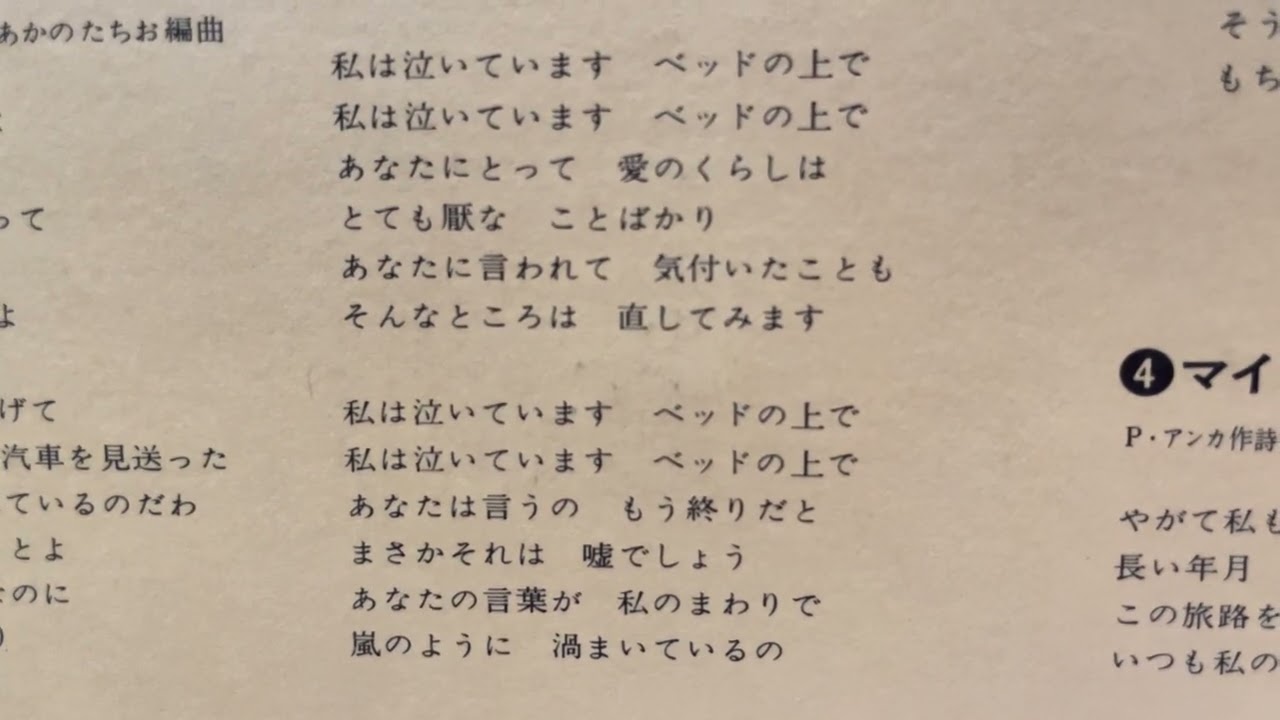 あかのたちお編曲
って
よ
げて
汽車を見送った
ているのだわ
とよ
なのに
私は泣いています　ベッドの上で
私は泣いています　ベッドの上で
あなたにとって　愛のくらしは
とても厭な　ことばかり
あなたに言われて　気付いたことも
そんなところは　直してみます
私は泣いています　ベッドの上で
私は泣いています　ベッドの上で
あなたは言うの　もう終りだと
まさかそれは　嘘でしょう
あなたの言葉が　私のまわりで
嵐のように　渦まいているの
そう
もち
❹マイ
P・アンカ作詩
やがて私も
長い年月
この旅路を
いつも私の